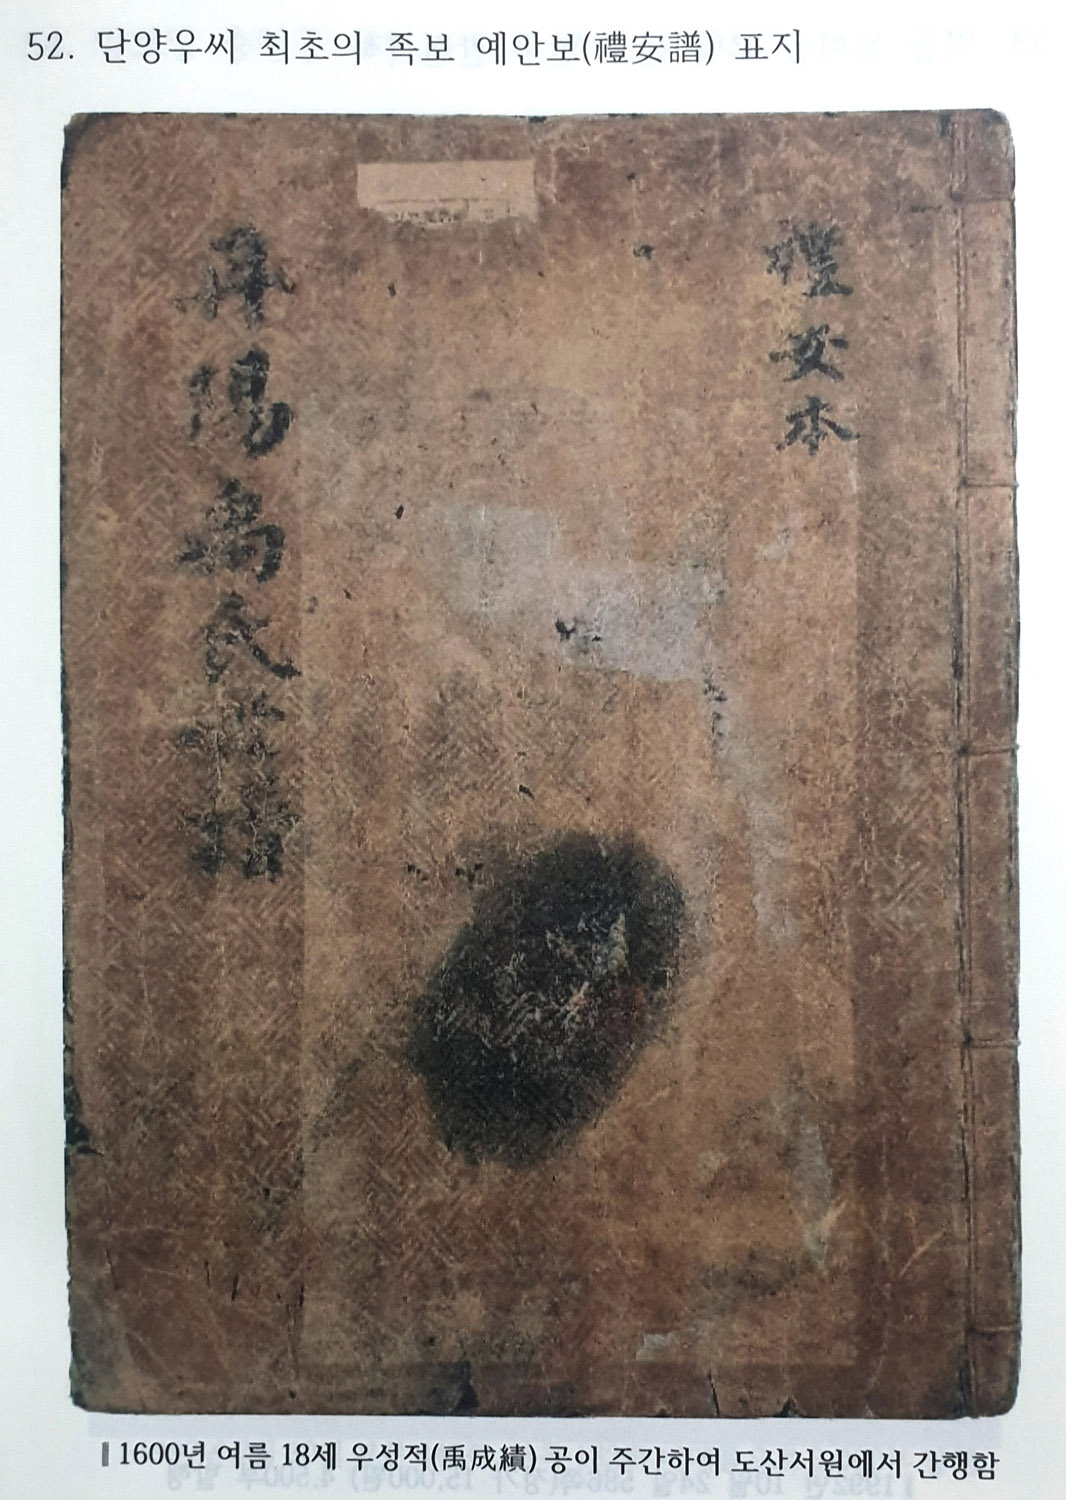 52. 단양우씨 최초의 족보 예안보(禮安譜) 표지
禮安本
丹陽禹氏族譜
1600년 여름 18세 우성적(禹成績) 공이 주간하여 도산서원에서 간행함